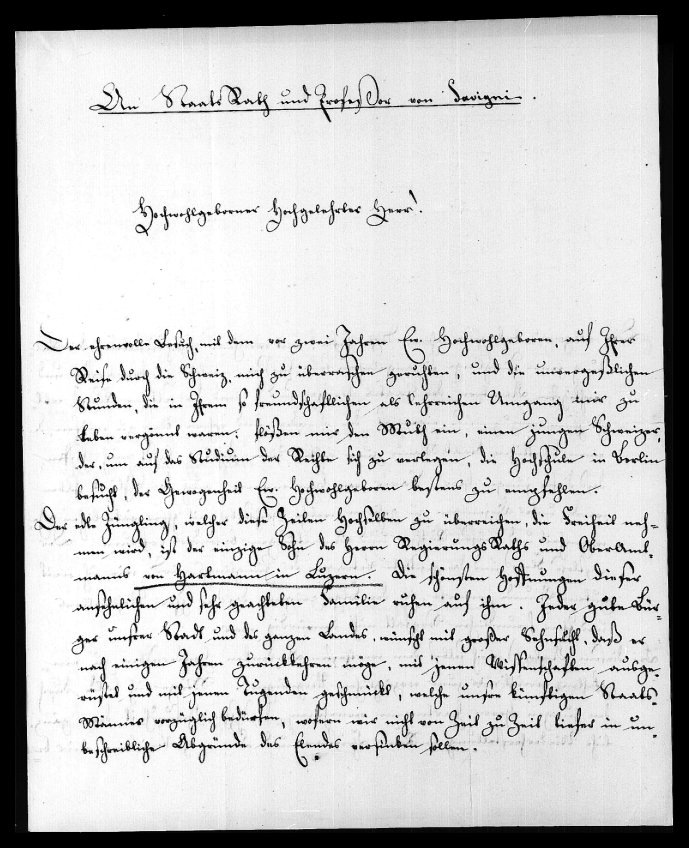 An StaatsRath und Professor von Savigni.
Hochwohlgeborner Hochgelehrter Herr!
Der ehrenvolle Besuch, mit dem vor zwei Jahren Ew. Hochwohlgeboren, auf Ihrer
Reise durch die Schweiz, mich zu überraschen geruhten, und die unvergeßlichen
Stunden, die in Ihrem so freundschaftlichen als lehrreichen Umgang mir zu
leben vergönnt waren, flößen mir den Muth ein, einen jungen Schweizer,
der, um auf das Studium der Rechte sich zu verlegen, die Hochschule in Berlin
besucht, der Gewogenheit Ew. Hochwohlgeboren bestens zu empfehlen.
Der edle Jüngling, welcher diese Zeilen Hochselben zu überreichen, die Freiheit neh-
men wird, ist der einzige Sohn des Herrn RegierungsRaths und OberAmt-
manns von Hartmann in Luzern. Die schönsten Hoffnungen dieser
ansehnlichen und sehr geachteten Familie ruhen auf ihm. Jeder gute Bür-
ger unsrer Stadt und des ganzen Landes, wünscht mit großer Sehnsucht, daß er
nach einigen Jahren zurückkehren möge, mit jenen Wissenschaften ausge-
rüstet und mit jenen Tugenden geschmückt, welche unsre künftigen Staats-
Männer vorzüglich bedürfen, wofern wir nicht von Zeit zu Zeit tiefer in un-
beschreibliche Abgründe des Elendes versinken sollen.